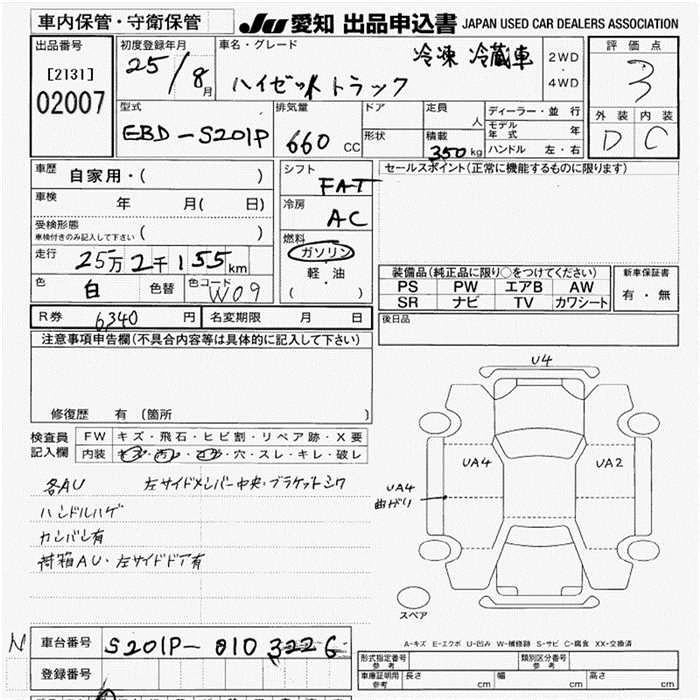 車内保管・守衛保管
JU 愛知 出品申込書 JAPAN USED CAR DEALERS ASSOCIATION
出品番号
[2131]
02007
初度登録年月
25/8月
車名・グレード
冷凍 冷蔵車
ハイゼットトラック
2WD
・
4WD
評価点
3
外装 内装
D C
型式
EBD-S201P
排気量
660 CC
ドア
形状
定員 人
積載 350 kg
ディーラー・並行
モデル年式 年
ハンドル 左・右
車歴 自家用・( )
車検 年 月( 日)
受検形態
車検付きのみ記入して下さい ( )
走行 25万2千155km
色 白 色替 色コード W09
シフト FAT
冷房 AC
燃料
ガソリン
軽・油
( )
セールスポイント(正常に機能するものに限ります)
装備品(純正品に限り○をつけてください)
PS PW エアB AW
SR ナビ TV カワシート
新車保証書
有・無
R券 6340 円 名変期限 月 日
後日品
注意事項申告欄(不具合内容等は具体的に記入して下さい)
修復歴 有(箇所 )
検査員記入欄
FW キズ・飛石・ヒビ割・リペア跡・X要
内装 キズ・汚レ・コゲ・穴・スレ・キレ・破レ
各AU 左サイドメンバー中央・ブラケットシワ
ハンドルハゲ
カンバン有
荷箱AU・左サイドドア有
U4
UA4
UA2
UA4
曲がり
スペア
A-キズ E-エクボ U-凹み W-補修跡 S-サビ C-腐食 XX-交換済
N
車台番号 S201P-0103226
登録番号
形式指定番号
参考
類別区分番号
参考
車庫証明用
参考
長さ cm 幅 cm 高さ cm